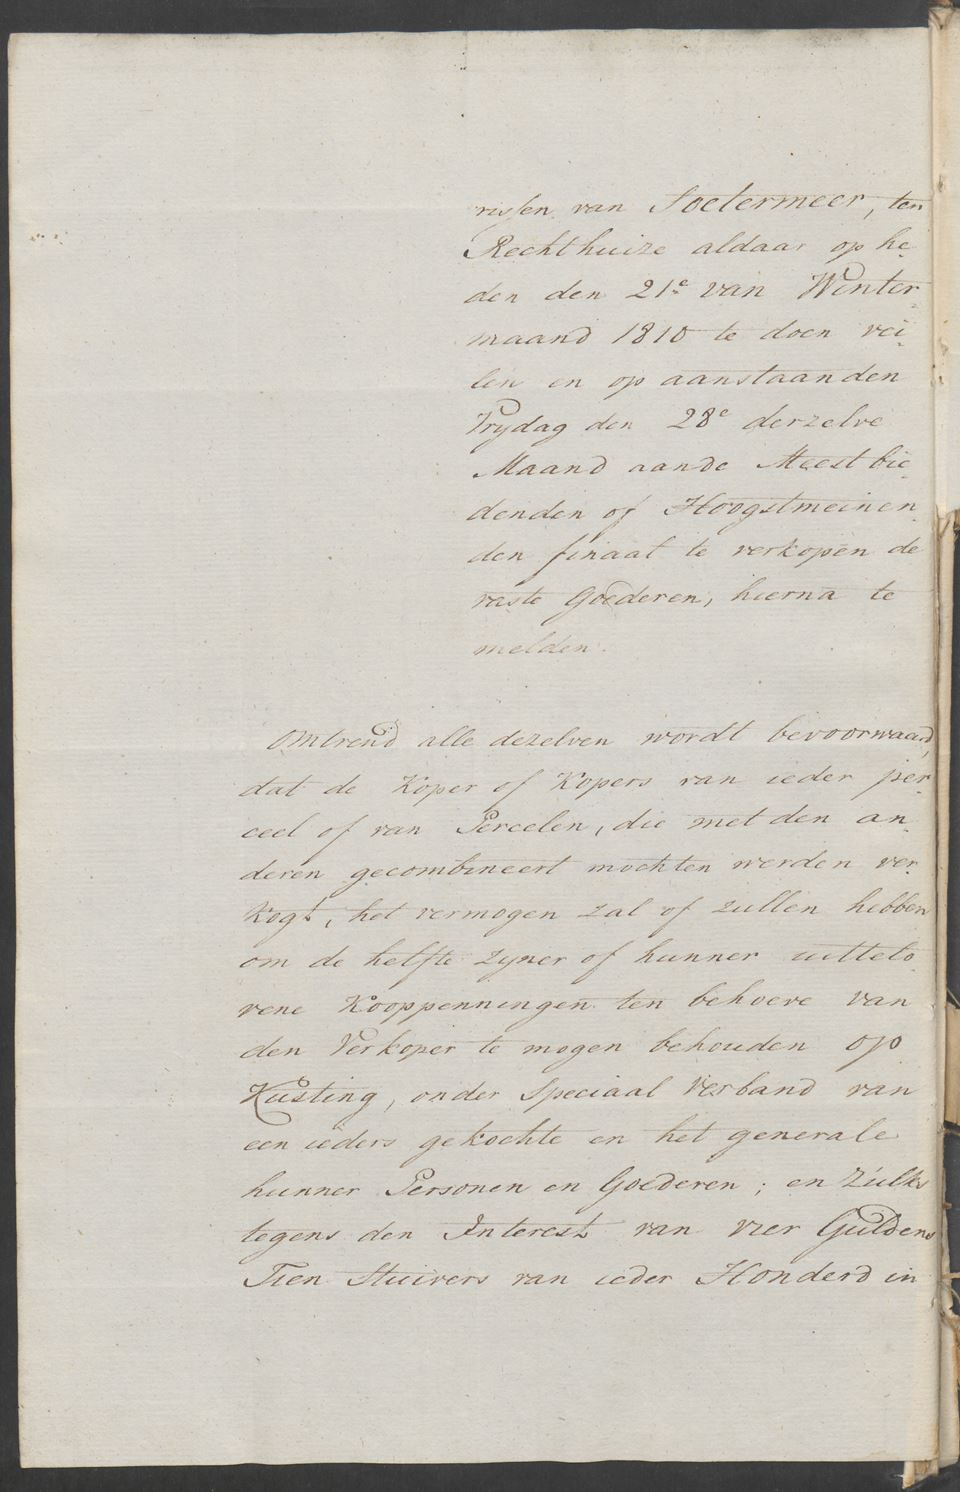 rissen van Soetermeer, ten
Rechthuize aldaar op he-
den den 21e van Winter-
maand 1810 te doen vei-
len en op aanstaanden
Vrydag den 28e derzelve
Maand aande Meest bie-
denden of Hoogstmeinen-
den finaal te verkopen de
vaste Goederen, hierna te
melden.
Omtrend alle dezelven wordt bevoorwaard,
dat de Koper of Kopers van ieder per-
ceel of van Percelen, die met den an-
deren gecombineert mochten werden ver-
kogt, het vermogen zal of zullen hebben
om de helfte zyner of hunner uitlelo
vene Kooppenningen ten behoeve van
den Verkoper te mogen behouden op
Kusting, onder Speciaal Verband van
een ieders gekochte en het generale
hunner Personen en Goederen; en Zulks
tegens den Interest van vier Guldens
Tien Stuivers van ieder Honderd in